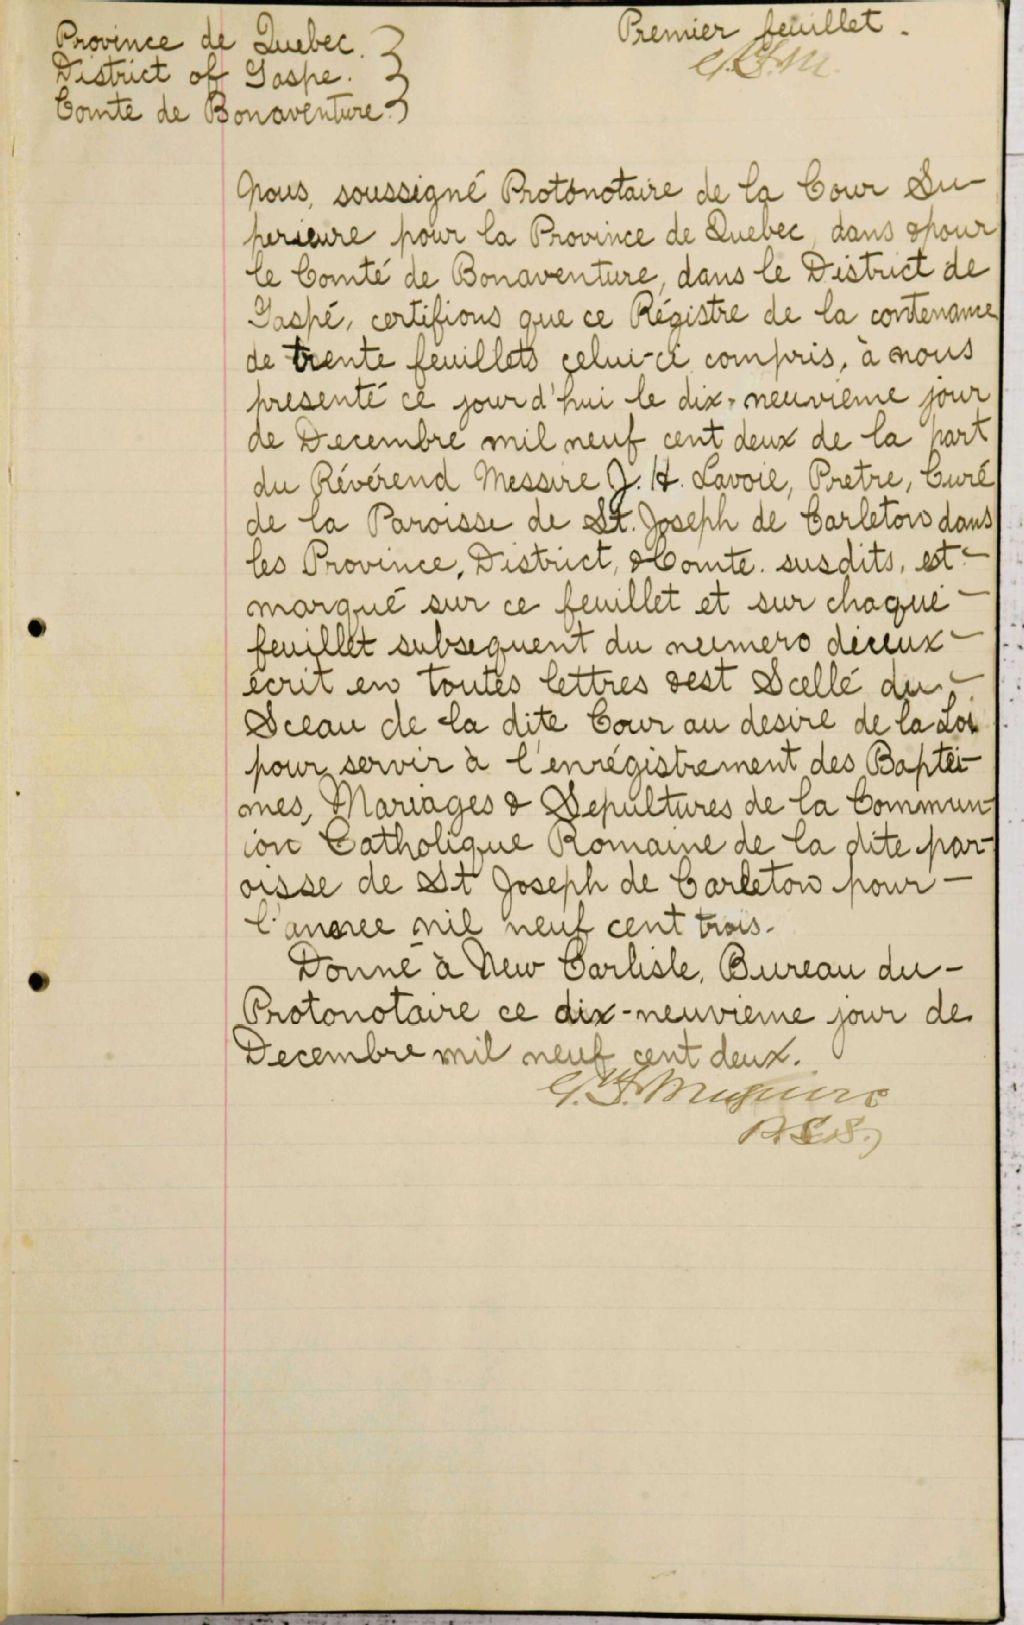 Province de Quebec.
District of Gaspe.
Comte de Bonaventure.
Premier feuillet.
G.F.M.
Nous, soussigné Protonotaire de la Cour Su-
perieure pour la Province de Quebec, dans & pour
le Comté de Bonaventure, dans le District de
Gaspé, certifions que ce Régistre de la contenance
de trente feuillets celui-ci compris, à nous
presenté ce jour d'hui le dix-neuvieme jour
de Decembre mil neuf cent deux de la part
du Révérend Messire J. H. Lavoie, Pretre, Curé
de la Paroisse de St. Joseph de Carleton dans
les Province, District, & Comte. susdits, est -
marqué sur ce feuillet et sur chaque -
feuillet subsequent du numero diceux -
écrit en toutes lettres & est Scellé du -
Sceau de la dite Cour au desire de la Loi
pour servir à l'enrégistrement des Baptê-
mes, Mariages & Sepultures de la Commun-
ion Catholique Romaine de la dite par-
oisse de St Joseph de Carleton pour -
l'annee mil neuf cent trois.
Donné à New Carlisle, Bureau du -
Protonotaire ce dix-neuvieme jour de
Decembre mil neuf cent deux.
G. F. Maguire
P.C.S.